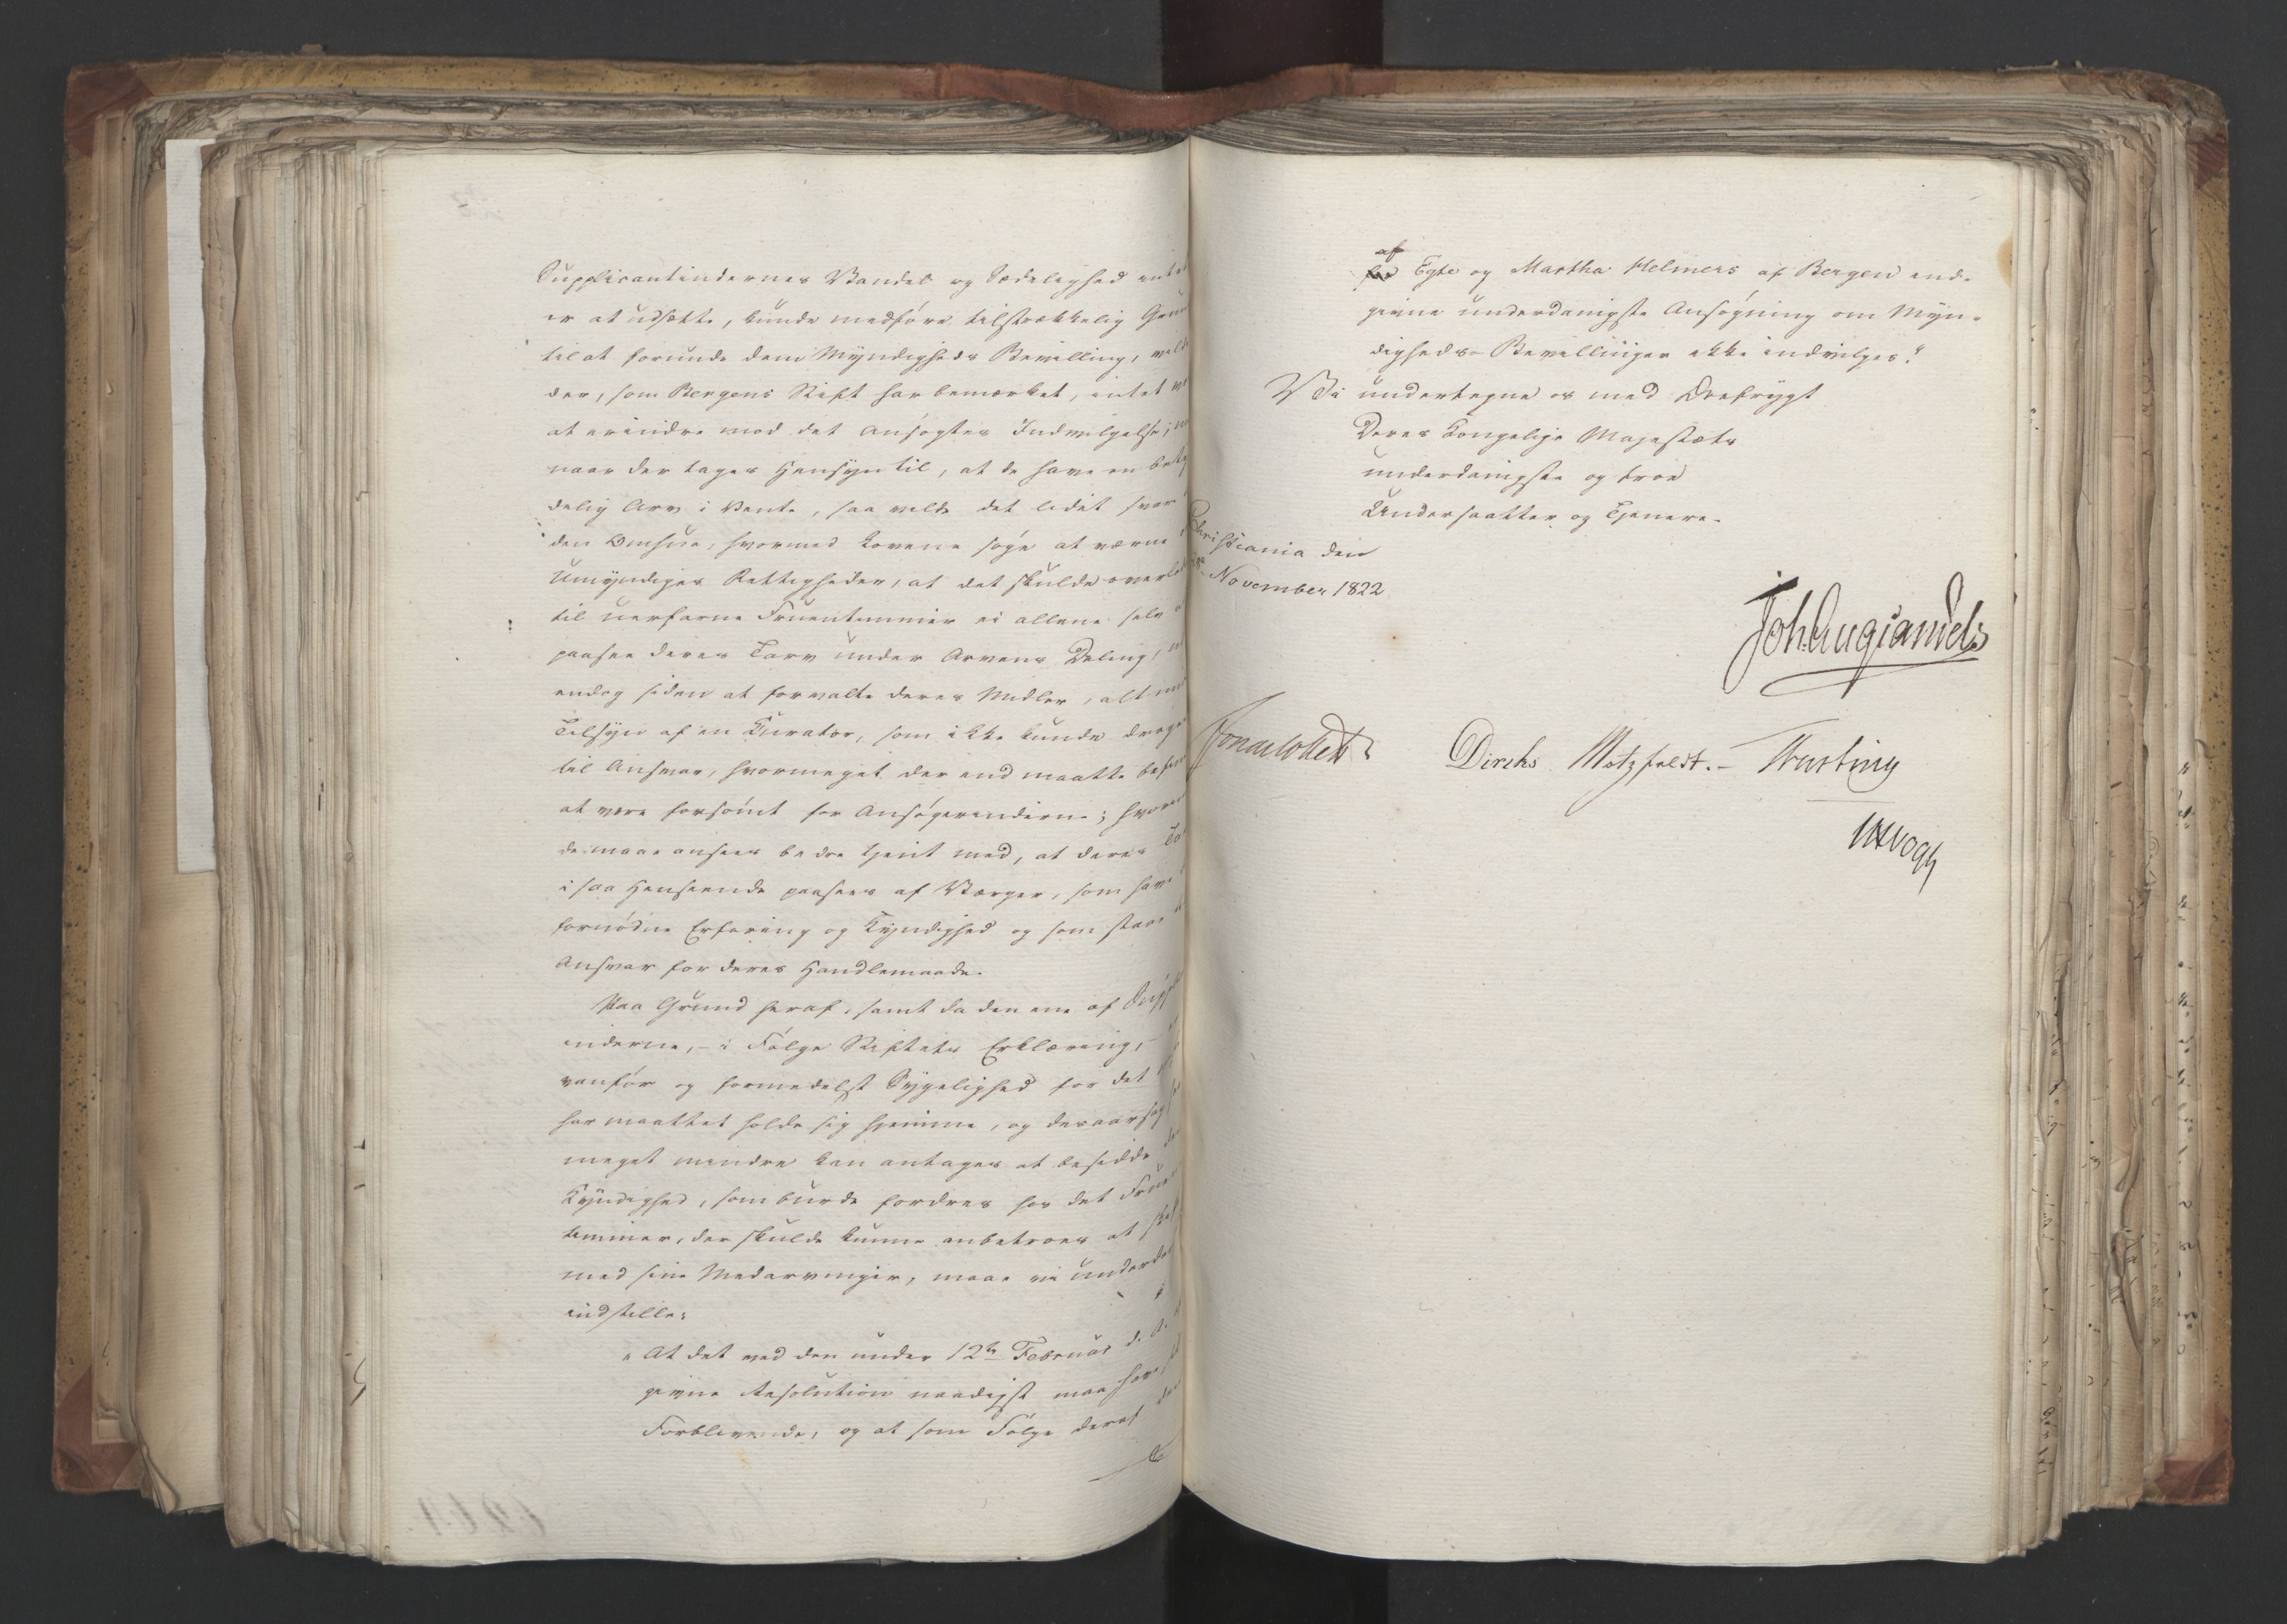 Supplicantindernes Vandel og Sædelighed intet
er at udsætte, kunde medføre tilstrækkelig Grund
til at forunde dem Myndigheds Bevilling, vilde
der, som Bergens Stift har bemærket, intet
at erindre mod det Ansøgtes Indvilgelse;
naar der tages Hensyn til, at de have en bety
delig Arv i Vente, saa vilde det lidet svare
den Omhue, hvormed Lovene søge at værne
Umyndiges Rettigheder, at det skulde overlades
til uerfarne Fruentimmer ei allene selv
paasee deres Tarv under Arvens Deling,
endog siden at forvalte deres Midler, alt
Tilsyn af en Curator, som ikke kunde drages
til Ansvar, hvormeget der end maatte befindes
at være forsømt for Ansøgerinderne; hvorimod
de maae ansees bedre tjent med, at deres
i saa Henseende paasees af Værger, som have
fornødne Erfaring og Kyndighed og som staae
Ansvar for deres Handlemaade.
Paa Grund heraf, samt da den ene af Suppl
inderne, - i Følge Stiftets Erklæring, -
vanfør og formedelst Sygelighed for det
har maattet holde sig hjemme, og desaarsag
meget mindre kan antages at besidde den
Kyndighed, som burde fordres hos det Fruen
timmer, der skulde kunne anbetroes at
med sine Medarvinger, maae vi underda
indstille:
"At det ved den under 12te Februar d. A.
givne Resolution naadigst maa have
Forblivende, og at som Følge deraf
af
Egte og Martha Helmers af Bergen ind-
givne underdanigste Ansøgning om Myn-
digheds-Bevillinger ikke indvilges."
Vi undertegne os med Ærefrygt
Deres Kongelige Majestæts
underdanigste og troe
Undersaatter og Tjenere.
Christiania den
November 1822
Joh. Aug. Sandels
Jonas Collett
Diriks Motzfeldt. - Krebting
JH Vogt